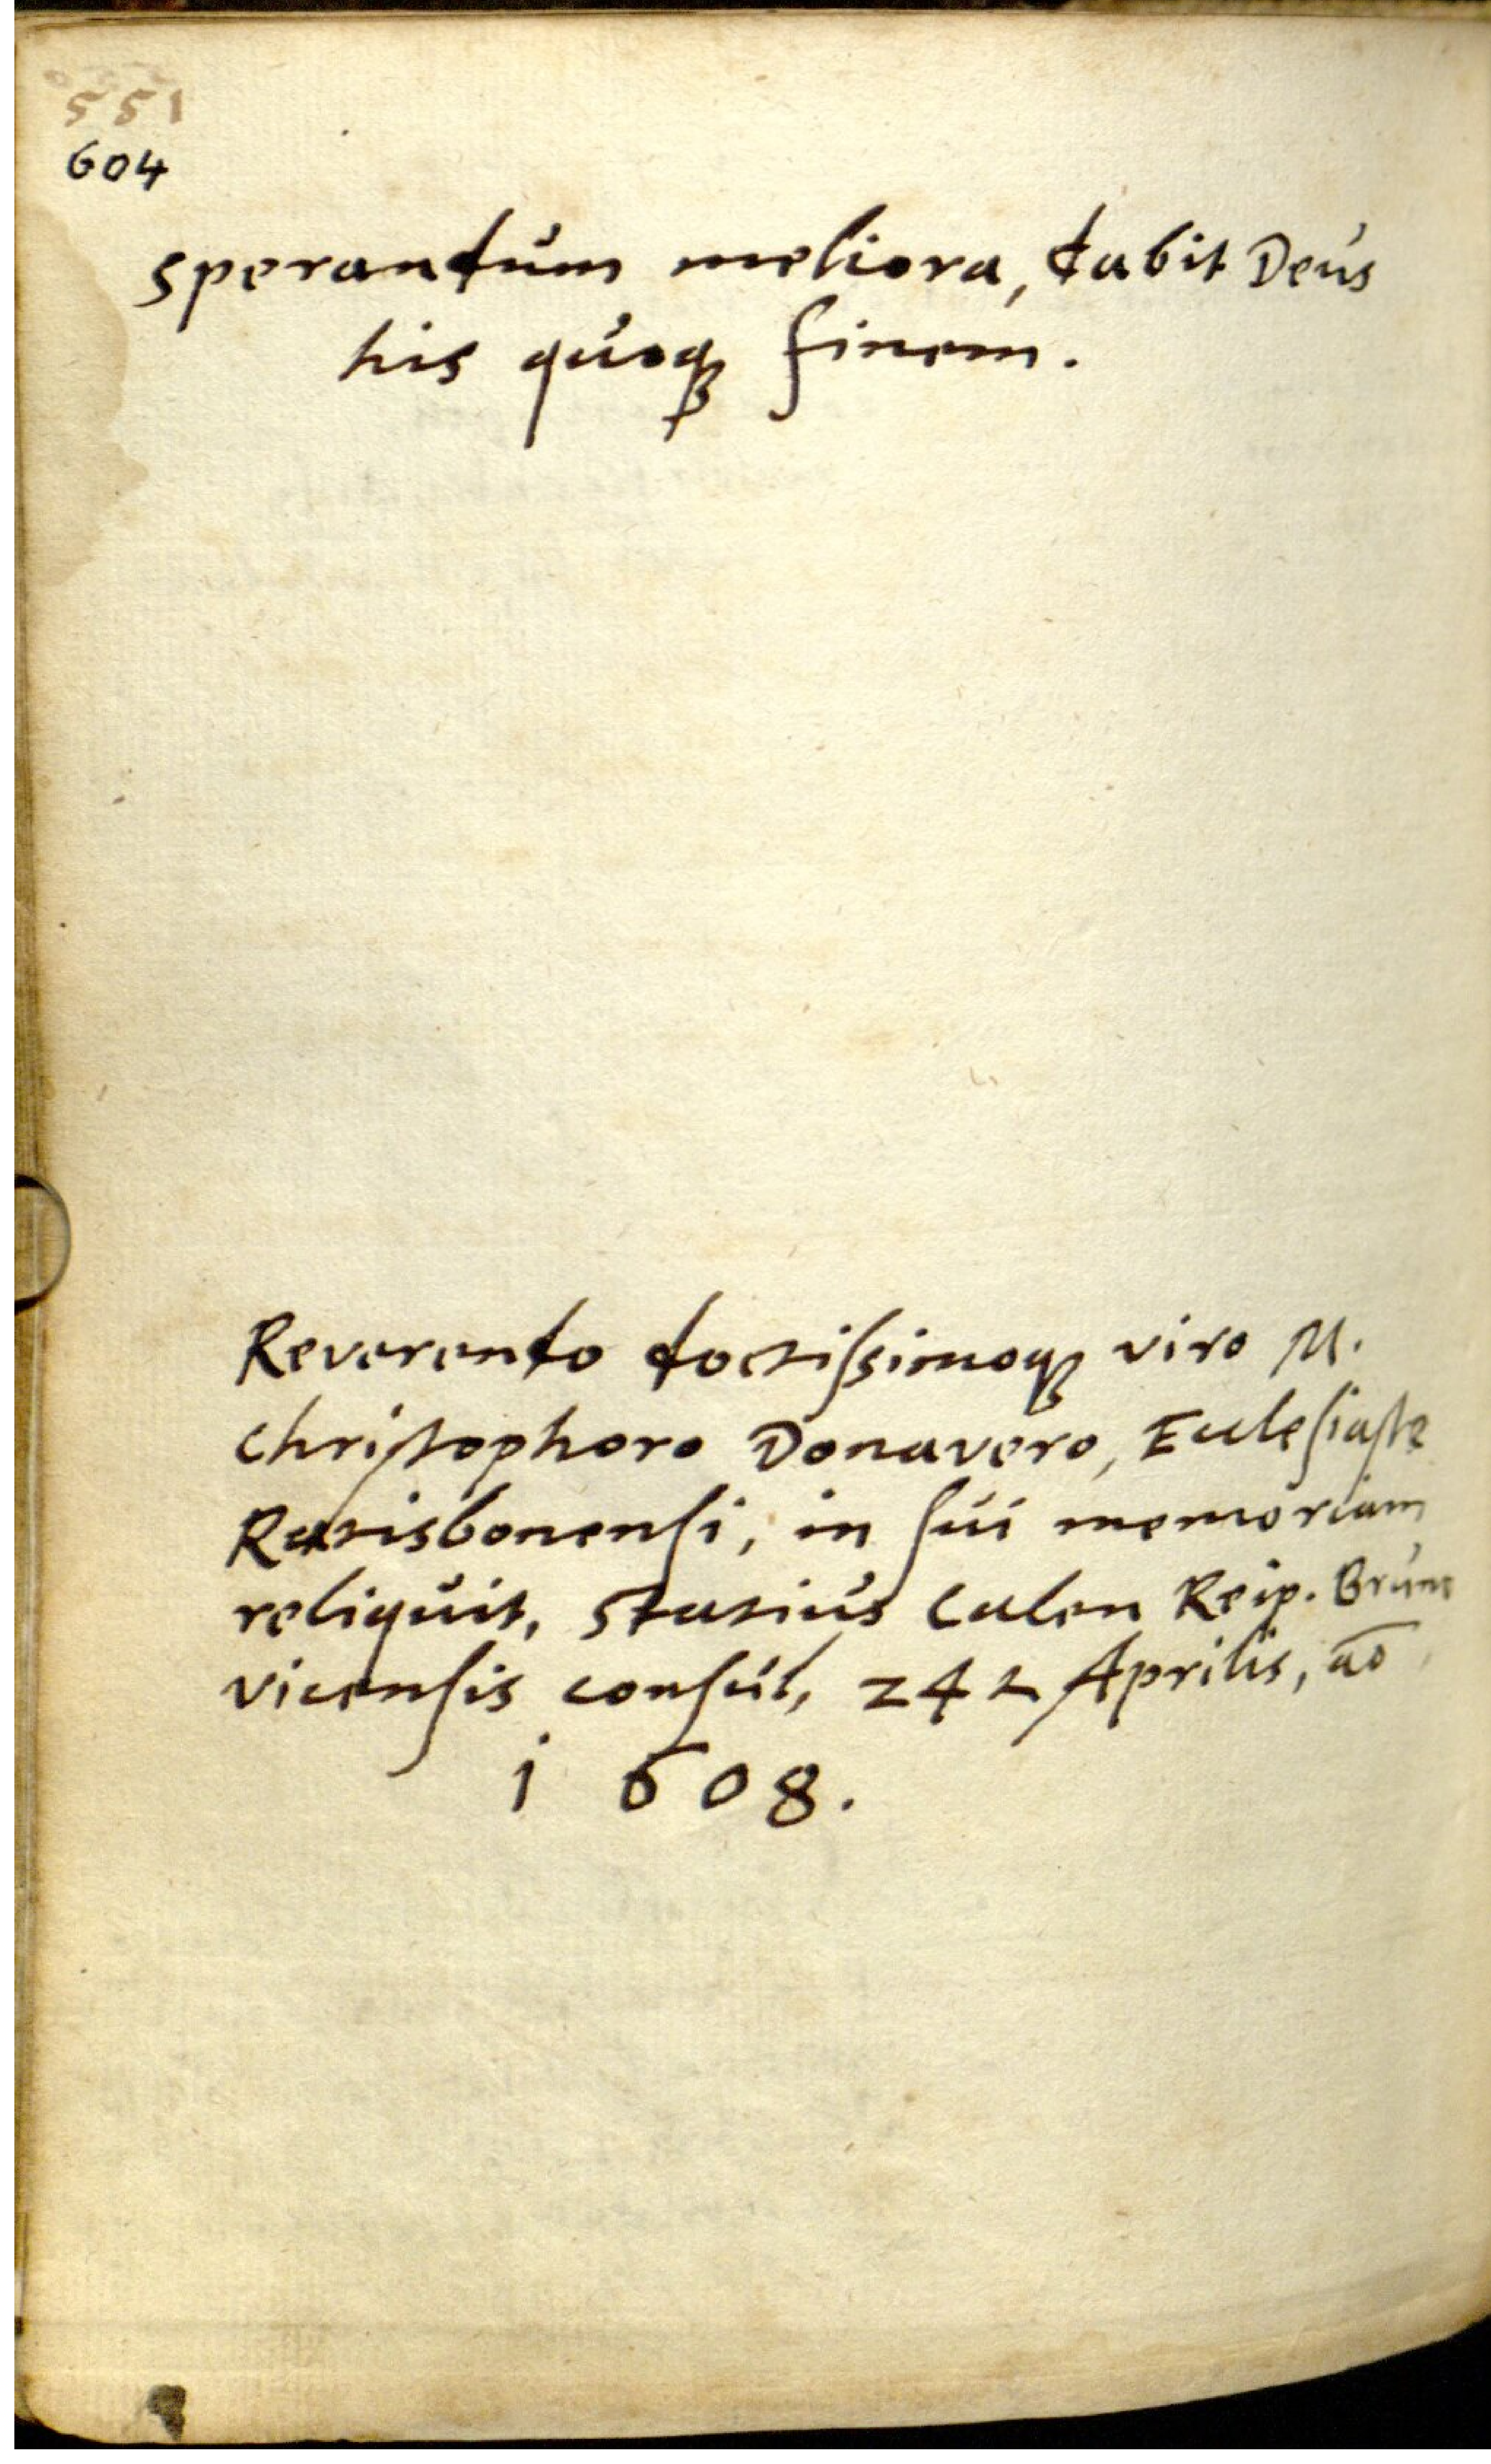 551
604
sperandum meliora, dabit Deus
his quoq finem.
Reverendo doctissimoq viro M.
Christophoro Donavero, Ecclesiaste
Ratisbonensi, in sui memoriam
reliquit, Statius Calen Reip. Bruns
vicensis consul, 24 Aprilis, ao
1608.